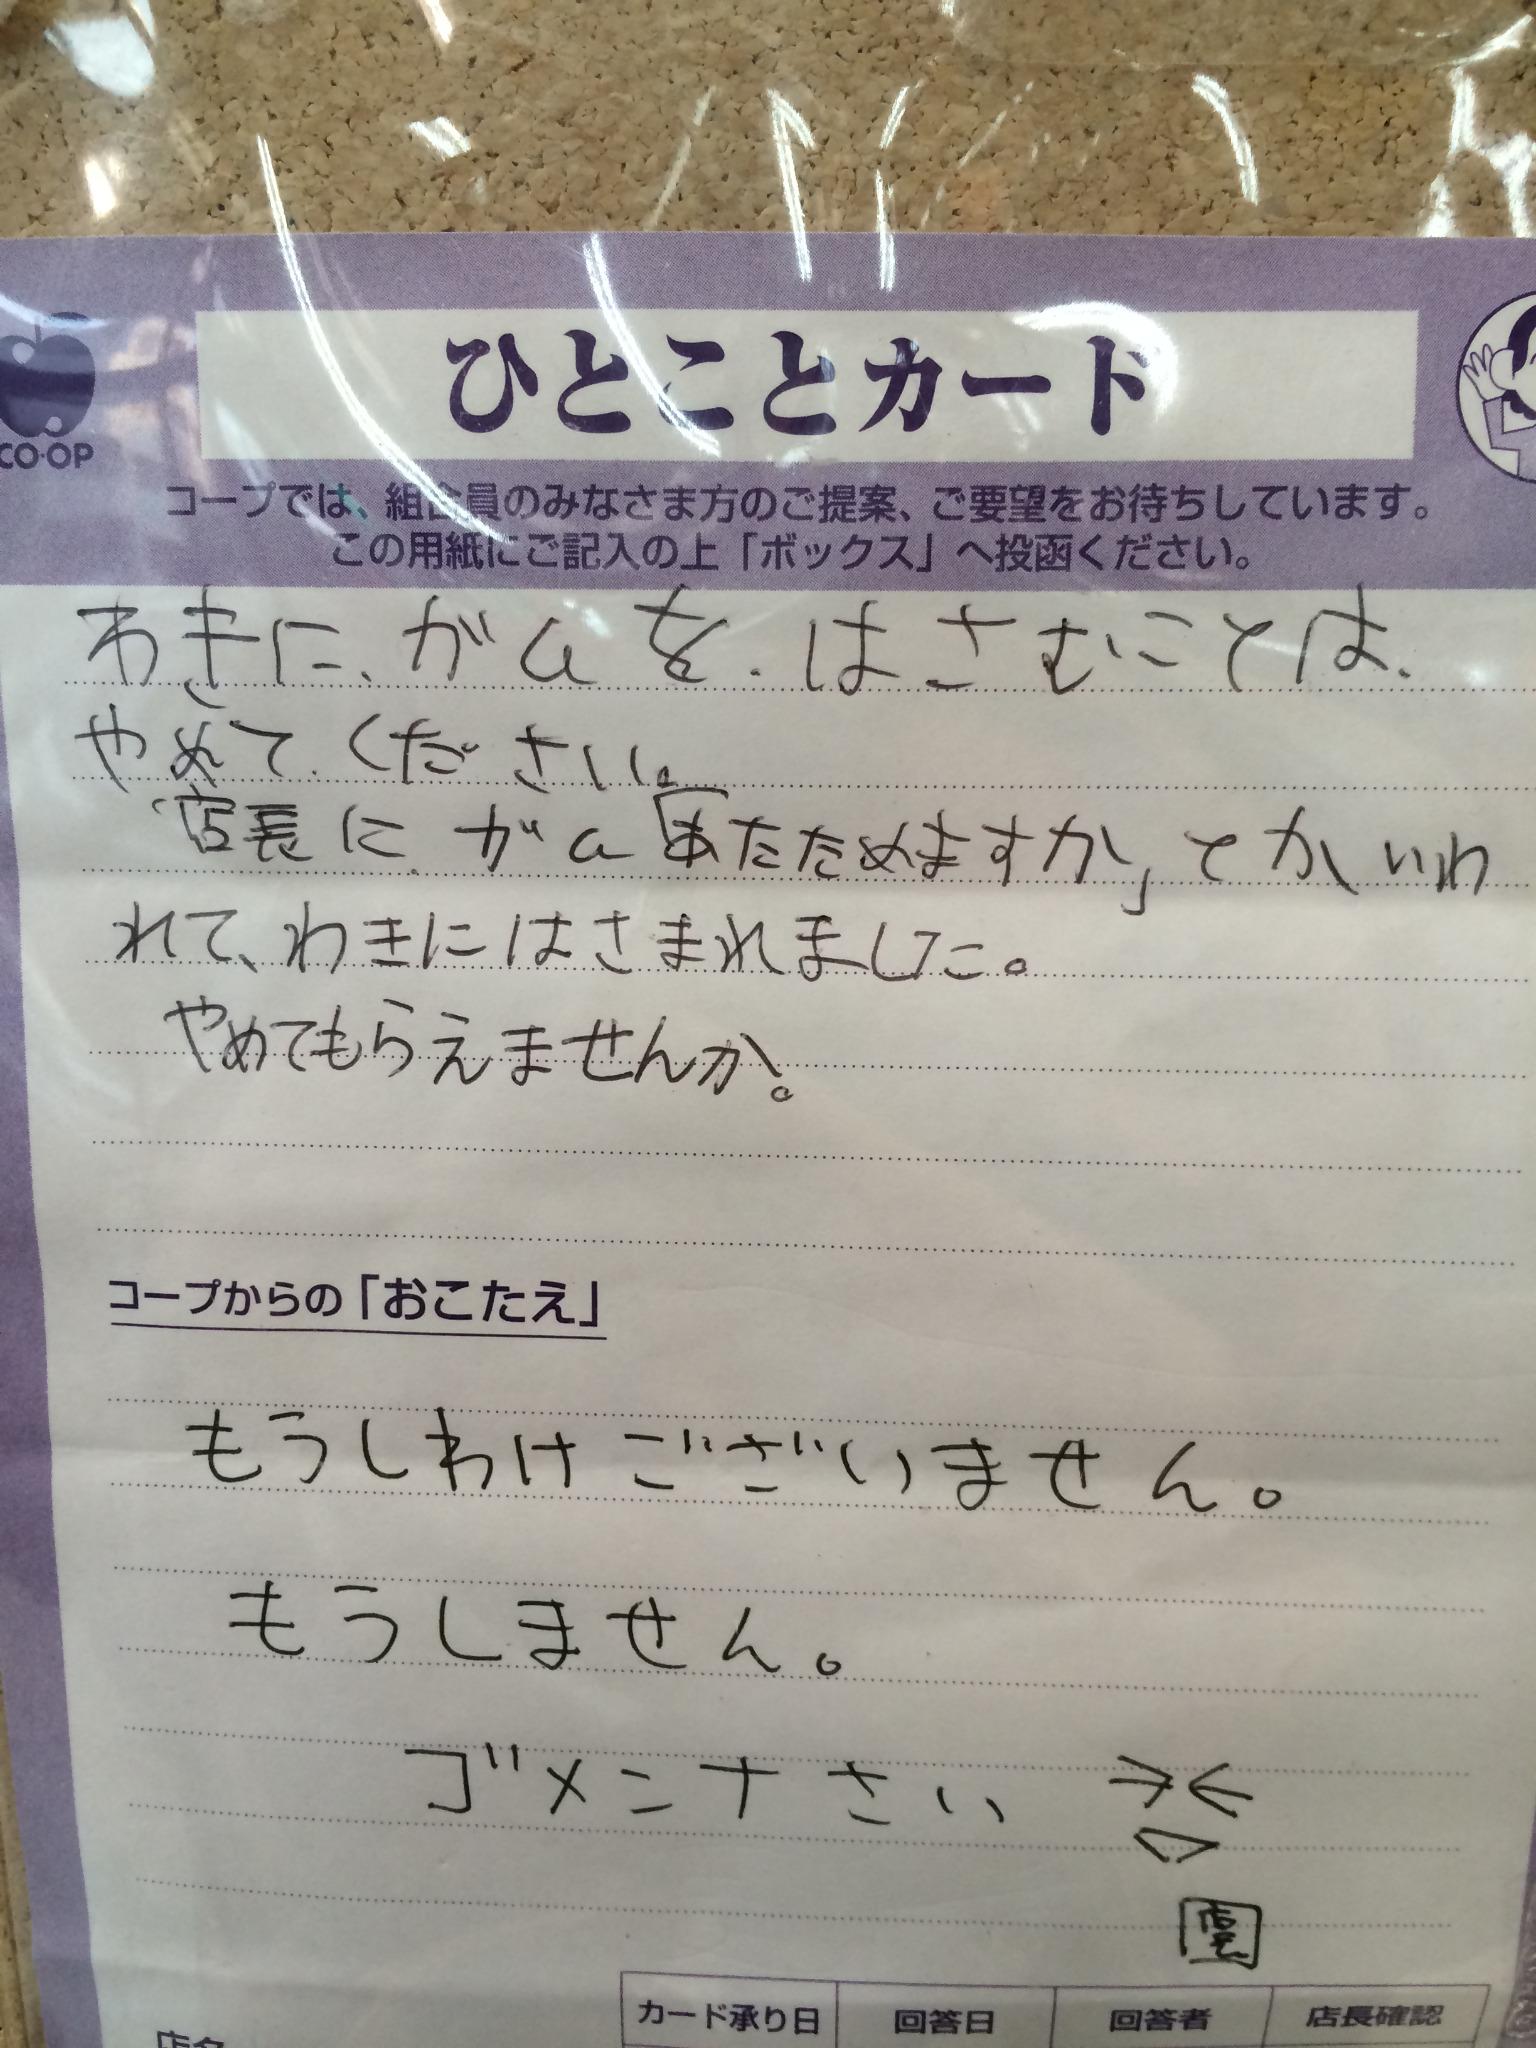 ひとことカード
CO・OP
コープでは、組合員のみなさま方のご提案、ご要望をお待ちしています。
この用紙にご記入の上「ボックス」へ投函ください。
わきに、ガムを、はさむことは、
やめてください。
店長にガム「あたためますか」とかいわ
れて、わきにはさまれました。
やめてもらえませんか。
コープからの「おこたえ」
もうしわけございません。
もうしません。
ゴメンナさい
店長
カード承り日 回答日 回答者 店長確認
店名